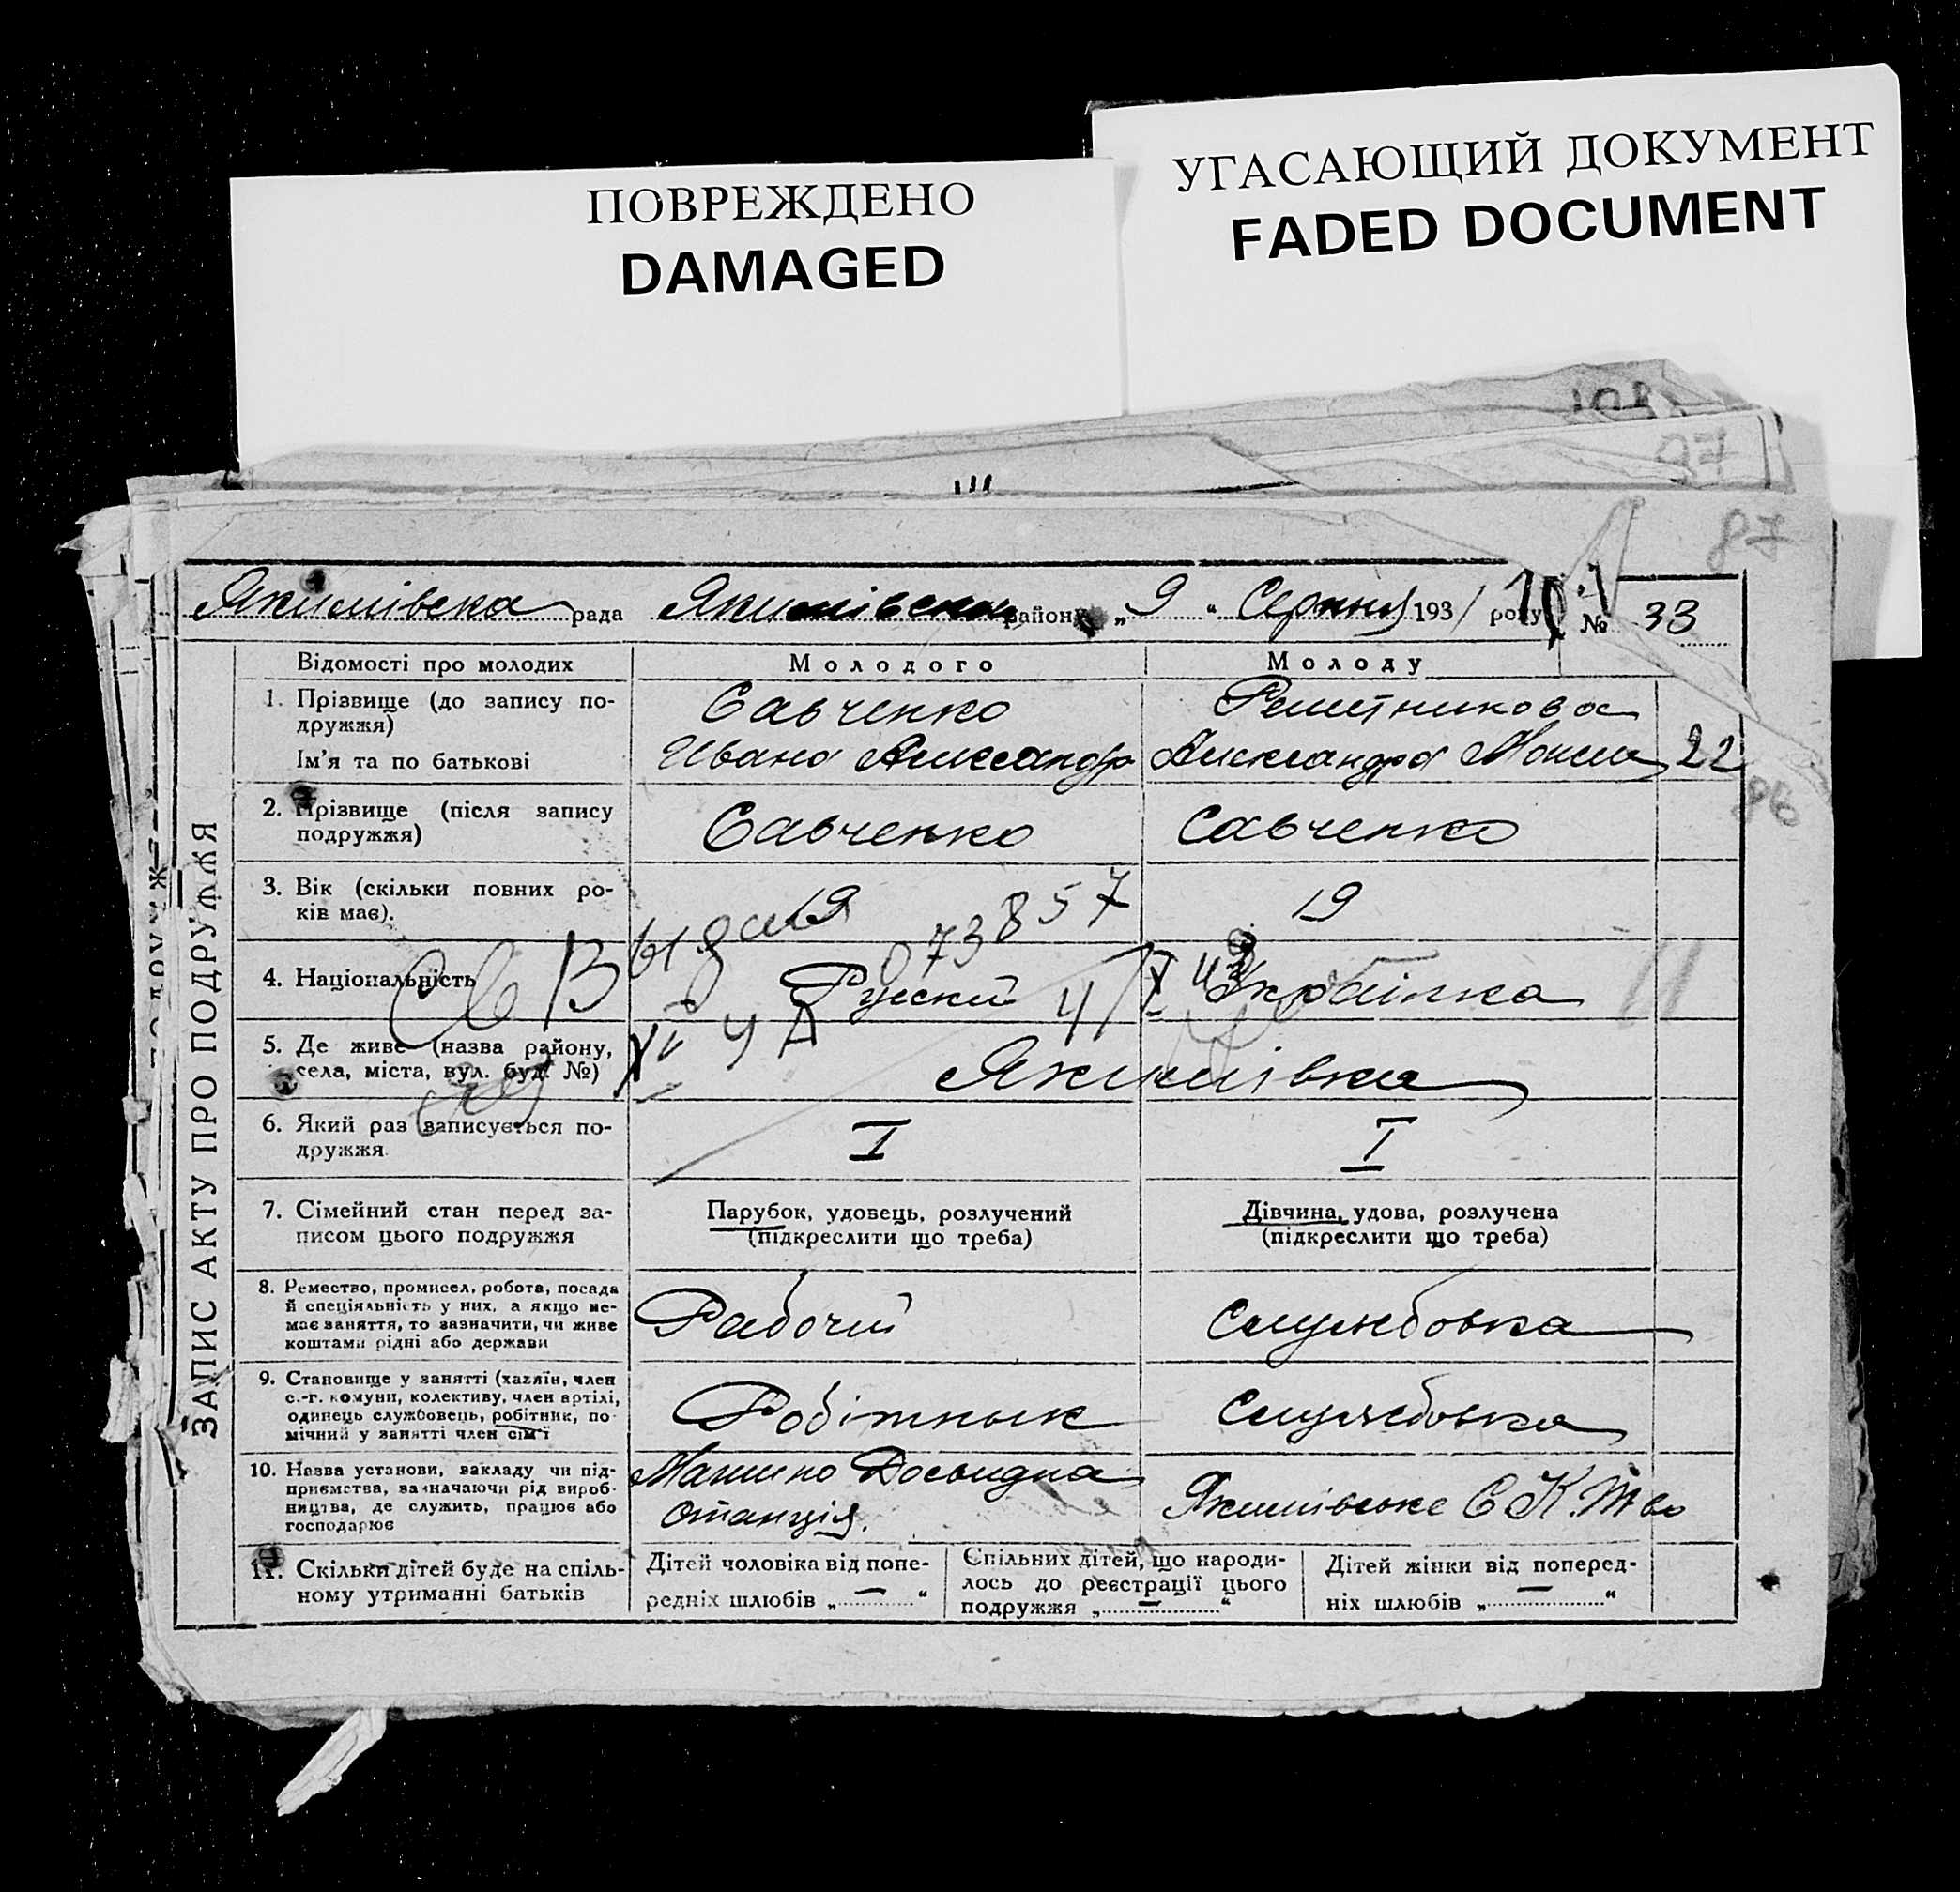 ПОВРЕЖДЕНО
DAMAGED
УГАСАЮЩИЙ ДОКУМЕНТ
FADED DOCUMENT
97
87
Якимівска рада Якимівськ району „ 9 “ Серпня 1931 року № 33
ЗАПИС АКТУ ПРО ПОДРУЖЖЯ
Відомості про молодих Молодого Молоду
1. Прізвище (до запису по-
дружжя)
Савченко Решетникова
Ім'я та по батькові Ивана Александр Александра 22
86
2. Прізвище (після запису
подружжя)
Савченко Савченко
3. Вік (скільки повних ро-
ків має).
19 19
Св Выдано 073857
4. Національність Руский Українка
5. Де живе (назва району,
села, міста, вул. буд. №)
Якимівка
6. Який раз записується по-
дружжя
I I
7. Сімейний стан перед за-
писом цього подружжя
Парубок, удовець, розлучений
(підкреслити що треба)
Дівчина, удова, розлучена
(підкреслити що треба)
8. Ремество, промисел, робота, посада
й спеціяльність у них, а якщо не-
має заняття, то зазначити, чи живе
коштами рідні або держави
Рабочий Службовка
9. Становище у занятті (хазяїн, член
с.-г. комуни, колективу, член артілі,
одинець службовець, робітник, по-
мічний у занятті член сім'ї
Робітнык Службовка
10. Назва установи, закладу чи під-
приємства, зазначаючи рід вироб-
ництва, де служить, працює або
господарює
Машино Досьвидна
станція.
Якимівське С.К.Т во
11. Скільки дітей буде на спіль-
ному утриманні батьків
Дітей чоловіка від попе-
редніх шлюбів „ — “
Спільних дітей, що народи-
лось до реєстрації цього
подружжя „ — “
Дітей жінки від поперед-
ніх шлюбів „ — “